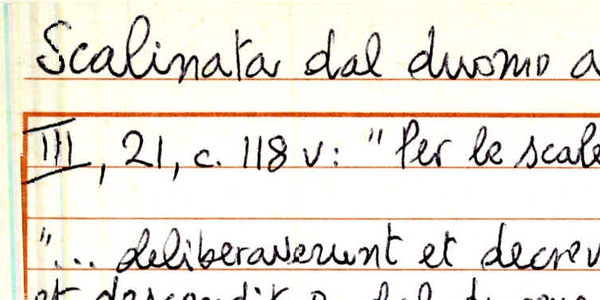 Scalinata dal duomo a
III, 21, c. 118 v: "Per le scale
"... deliberaverunt et decrev
et descendit